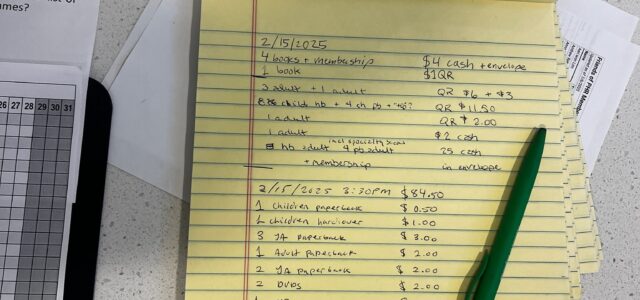 ames?
26 27 28 29 30 31
Friends of PHR Member
2/15/2025
4 books + membership $4 cash + envelope
1 book $1 QR
3 adult + 1 adult QR $6 + $3
childs hb + 4 ch pb + QR $11.50
1 adult QR $2.00
1 adult $2 cash
incl specialty
hb adult 4 pb adult 25 cash
+ membership in envelope
2/15/2025 3:30PM $84.50
1 children paperback $0.50
2 children hardcover $1.00
3 YA paperback $3.00
1 Adult paperback $2.00
2 YA paperback $2.00
2 DVDs $2.00